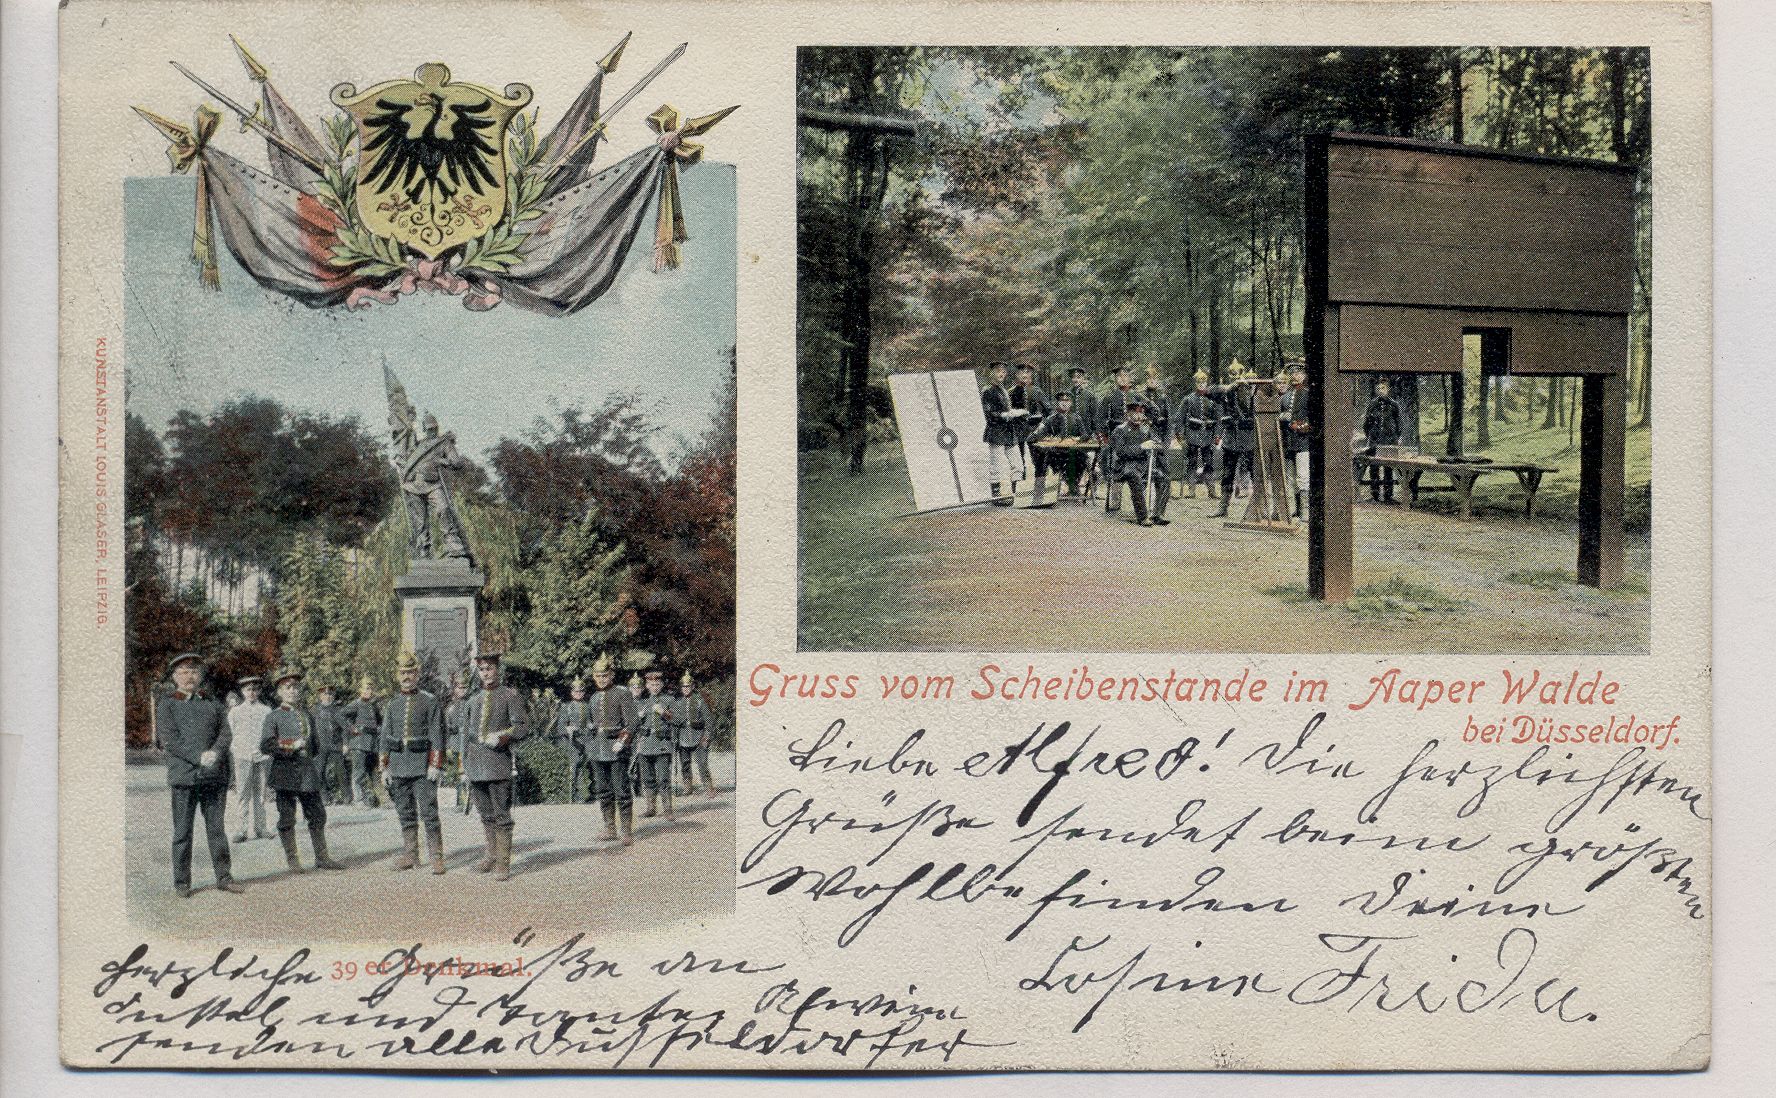 KUNSTANSTALT LOUIS GLASER, LEIPZIG.
Gruss vom Scheibenstande im Aaper Walde
bei Düsseldorf.
Liebe Alfred! Die herzlichsten
Grüße sendet beim größten
Wohlbefinden Deine
Cosine Frida.
39er Denkmal.
Herzliche Grüße an
Onkel und Tante
senden alle Düsseldorfer